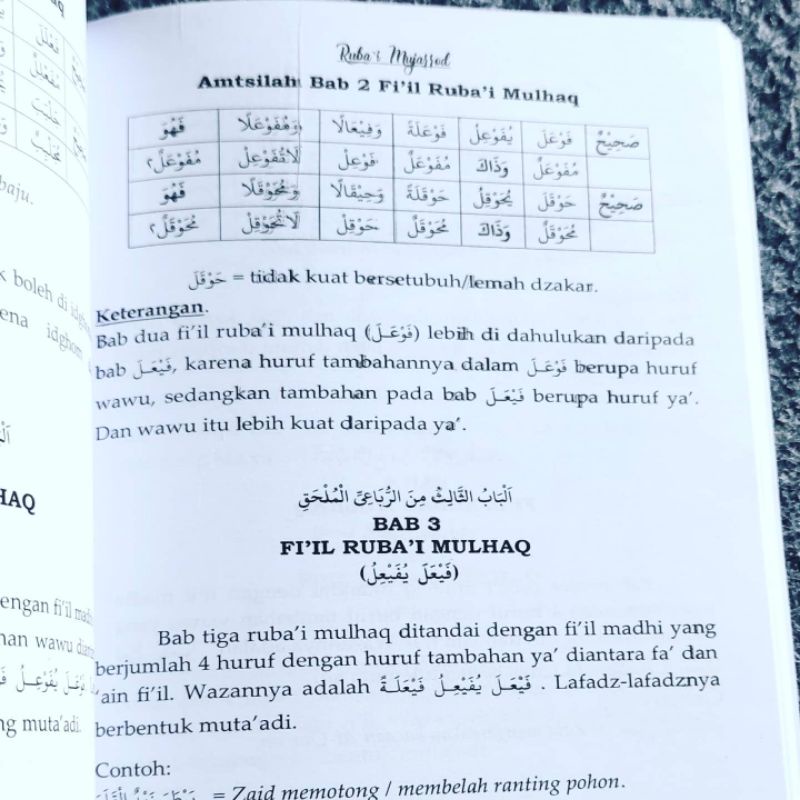 Ruba'i Mujarrod
Amtsilah Bab 2 Fi'il Ruba'i Mulhaq
صَحِيْحٌ فَوْعَلَ يُفَوْعِلُ فَوْعَلَةً وَفِيْعَالًا وَمُفَوْعَلًا فَهُوَ
مُفَوْعِلٌ وَذَاكَ مُفَوْعَلٌ فَوْعِلْ لَاتُفَوْعِلْ مُفَوْعَلٌ ٢
صَحِيْحٌ حَوْقَلَ يُحَوْقِلُ حَوْقَلَةً وَحِيْقَالًا وَمُحَوْقَلًا فَهُوَ
مُحَوْقِلٌ وَذَاكَ مُحَوْقَلٌ حَوْقِلْ لَاتُحَوْقِلْ مُحَوْقَلٌ ٢
حَوْقَلَ = tidak kuat bersetubuh/lemah dzakar.
Keterangan.
Bab dua fi'il ruba'i mulhaq (فَوْعَلَ) lebih di dahulukan daripada
bab فَيْعَلَ, karena huruf tambahannya dalam فَوْعَلَ berupa huruf
wawu, sedangkan tambahan pada bab فَيْعَلَ berupa huruf ya'.
Dan wawu itu lebih kuat daripada ya'.
اَلْبَابُ الثَّالِثُ مِنَ الرُّبَاعِيِّ الْمُلْحَقِ
BAB 3
FI'IL RUBA'I MULHAQ
(فَيْعَلَ يُفَيْعِلُ)
Bab tiga ruba'i mulhaq ditandai dengan fi'il madhi yang
berjumlah 4 huruf dengan huruf tambahan ya' diantara fa' dan
'ain fi'il. Wazannya adalah فَيْعَلَ يُفَيْعِلُ فَيْعَلَةً . Lafadz-lafadznya
berbentuk muta'adi.
Contoh:
= Zaid memotong / membelah ranting pohon.